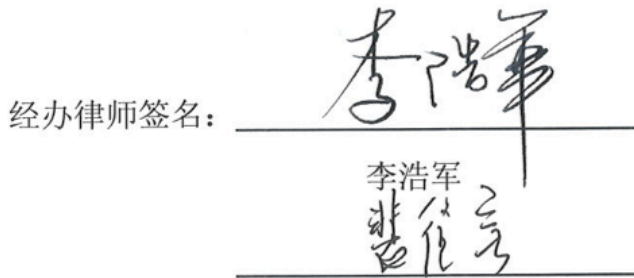 经办律师签名：李浩军
李浩军